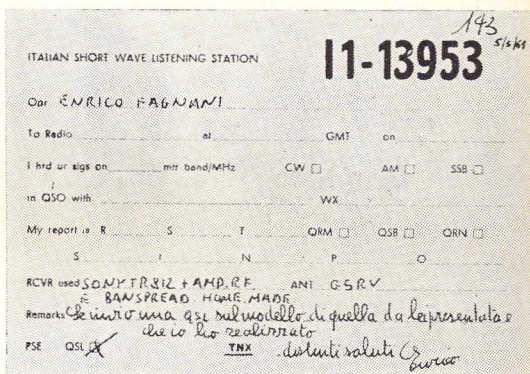 193
5/6/69
ITALIAN SHORT WAVE LISTENING STATION I1-13953
Opr ENRICO FAGNANI
To Radio at GMT on
I hrd ur sigs on mtr band/MHz CW AM SSB
in QSO with WX
My report is R S T QRM QSB QRN
S I N P O
RCVR used SONY TR812 + AMP. RF ANT G5RV
E BANSPREAD HOME MADE
Remarks Le invio una QSL sul modello di quella da lei presentata e
che io ho realizzato
PSE QSL TNX distinti saluti Enrico